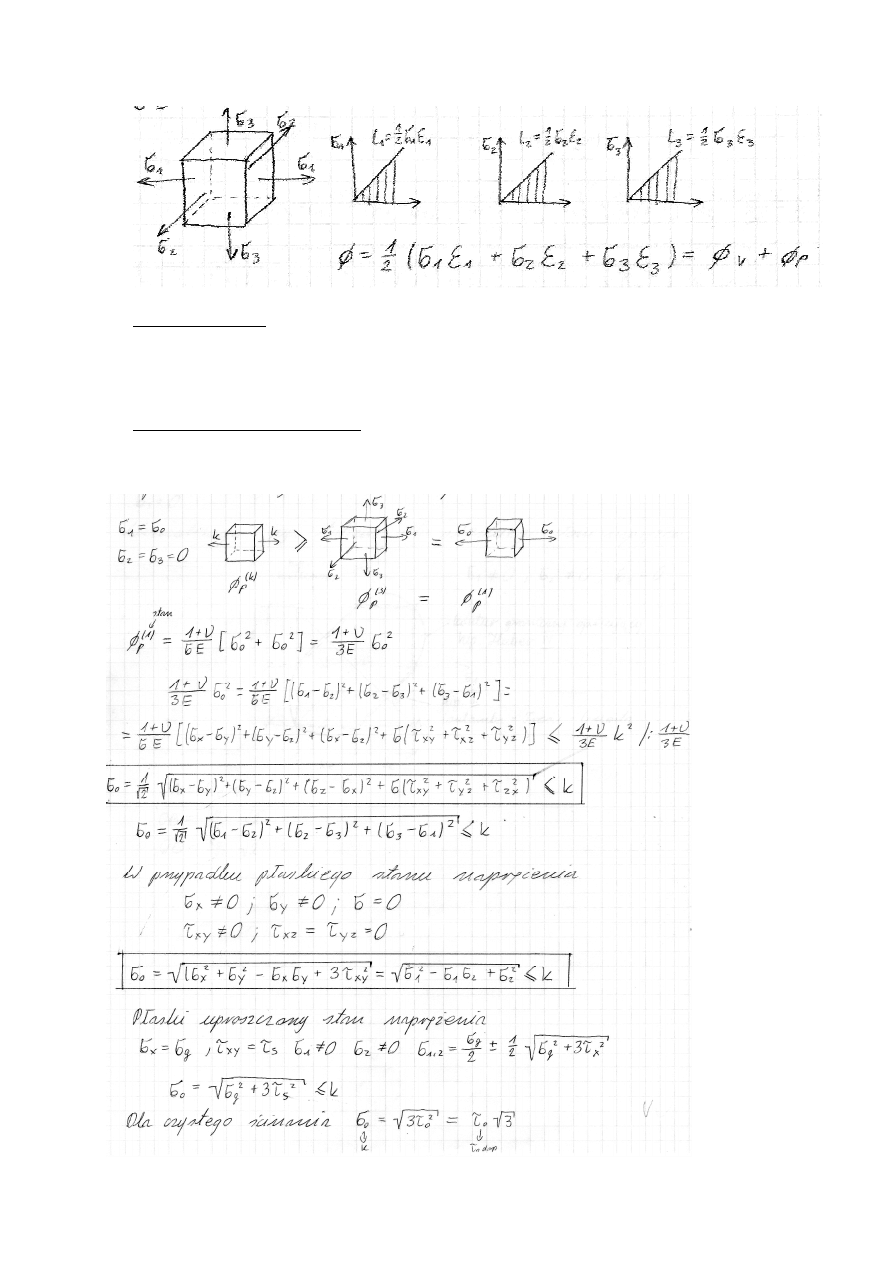 σ3 σ2
σ1 σ1
σ2 σ3
σ1 L1=½σ1ε1 σ2 L2=½σ2ε2 σ3 L3=½σ3ε3
ϕ=½(σ1ε1 + σ2ε2 + σ3ε3)= ϕv + ϕp
σ1=σ0
σ2=σ3=0
k k ⩾ σ1 σ2 σ3 σ1 σ2 σ3 = σ0 σ0
ϕp^(k) ϕp^(3) = ϕp^(1)
stan
ϕp^(1) = (1+ν)/6E [σ0² + σ0²] = (1+ν)/3E σ0²
(1+ν)/3E σ0² = (1+ν)/6E [(σ1-σ2)²+(σ2-σ3)²+(σ3-σ1)²]=
= (1+ν)/6E [(σx-σy)²+(σy-σz)²+(σx-σz)²+6(τxy²+τxz²+τyz²)] ⩽ (1+ν)/3E k² /: (1+ν)/3E
σ0 = 1/√2 √((σx-σy)²+(σy-σz)²+(σz-σx)²+6(τxy²+τyz²+τzx²)) ⩽ k
σ0 = 1/√2 √((σ1-σ2)²+(σ2-σ3)²+(σ3-σ1)²) ⩽ k
W przypadku płaskiego stanu naprężenia
σx≠0 ; σy≠0 ; σ=0
τxy≠0 ; τxz = τyz=0
σ0 = √(σx²+σy²-σxσy+3τxy²) = √(σ1²-σ1σ2+σ2²) ⩽ k
Płaski uproszczony stan naprężenia
σx=σg , τxy=τs σ1≠0 σ2≠0 σ1,2= σg/2 ± ½ √(σg²+3τx²)
σ0 = √(σg²+3τs²) ⩽k
Dla czystego ścinania σ0 = √(3τ0²) = τ0 √3
k